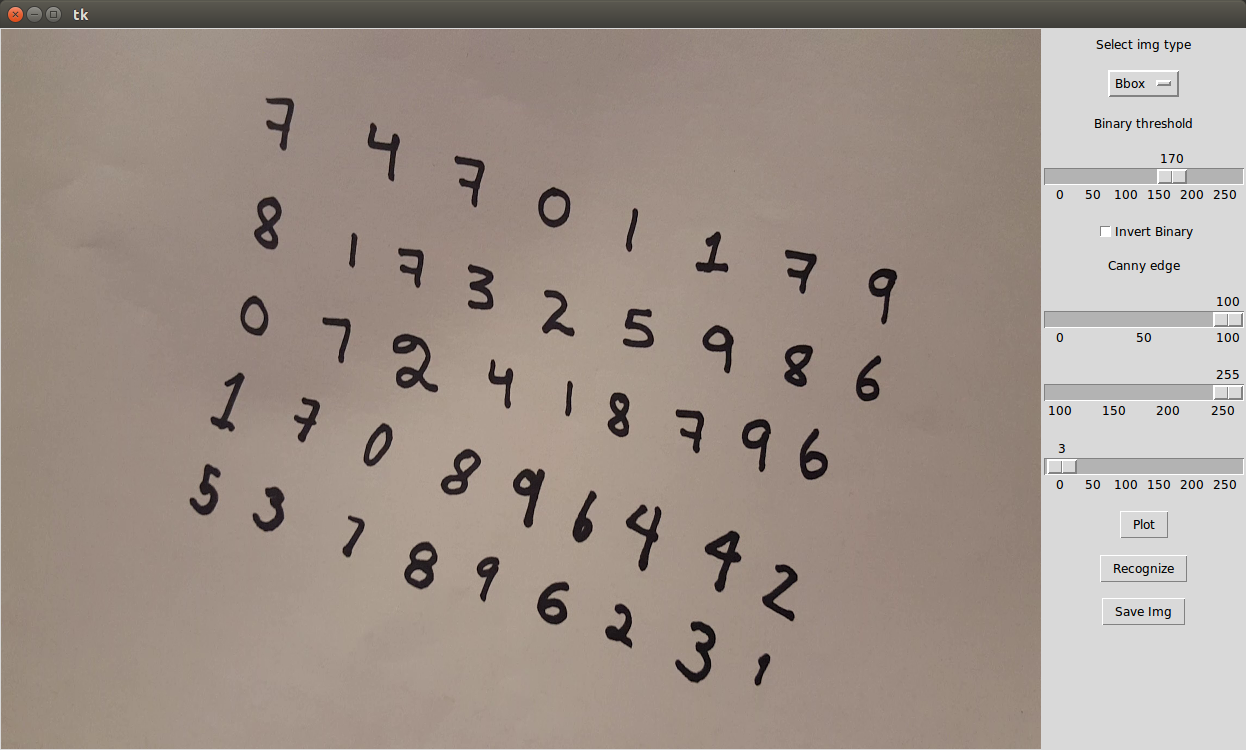 tk
7 4 7 0 1 1 7 9
8 1 7 3 2 5 9 8 6
0 7 2 4 1 8 7 9 6
1 7 0 8 9 6 4 4 2
5 3 7 8 9 6 2 3 1
Select img type
Bbox
Binary threshold
170
0 50 100 150 200 250
Invert Binary
Canny edge
100
0 50 100
255
100 150 200 250
3
0 50 100 150 200 250
Plot
Recognize
Save Img